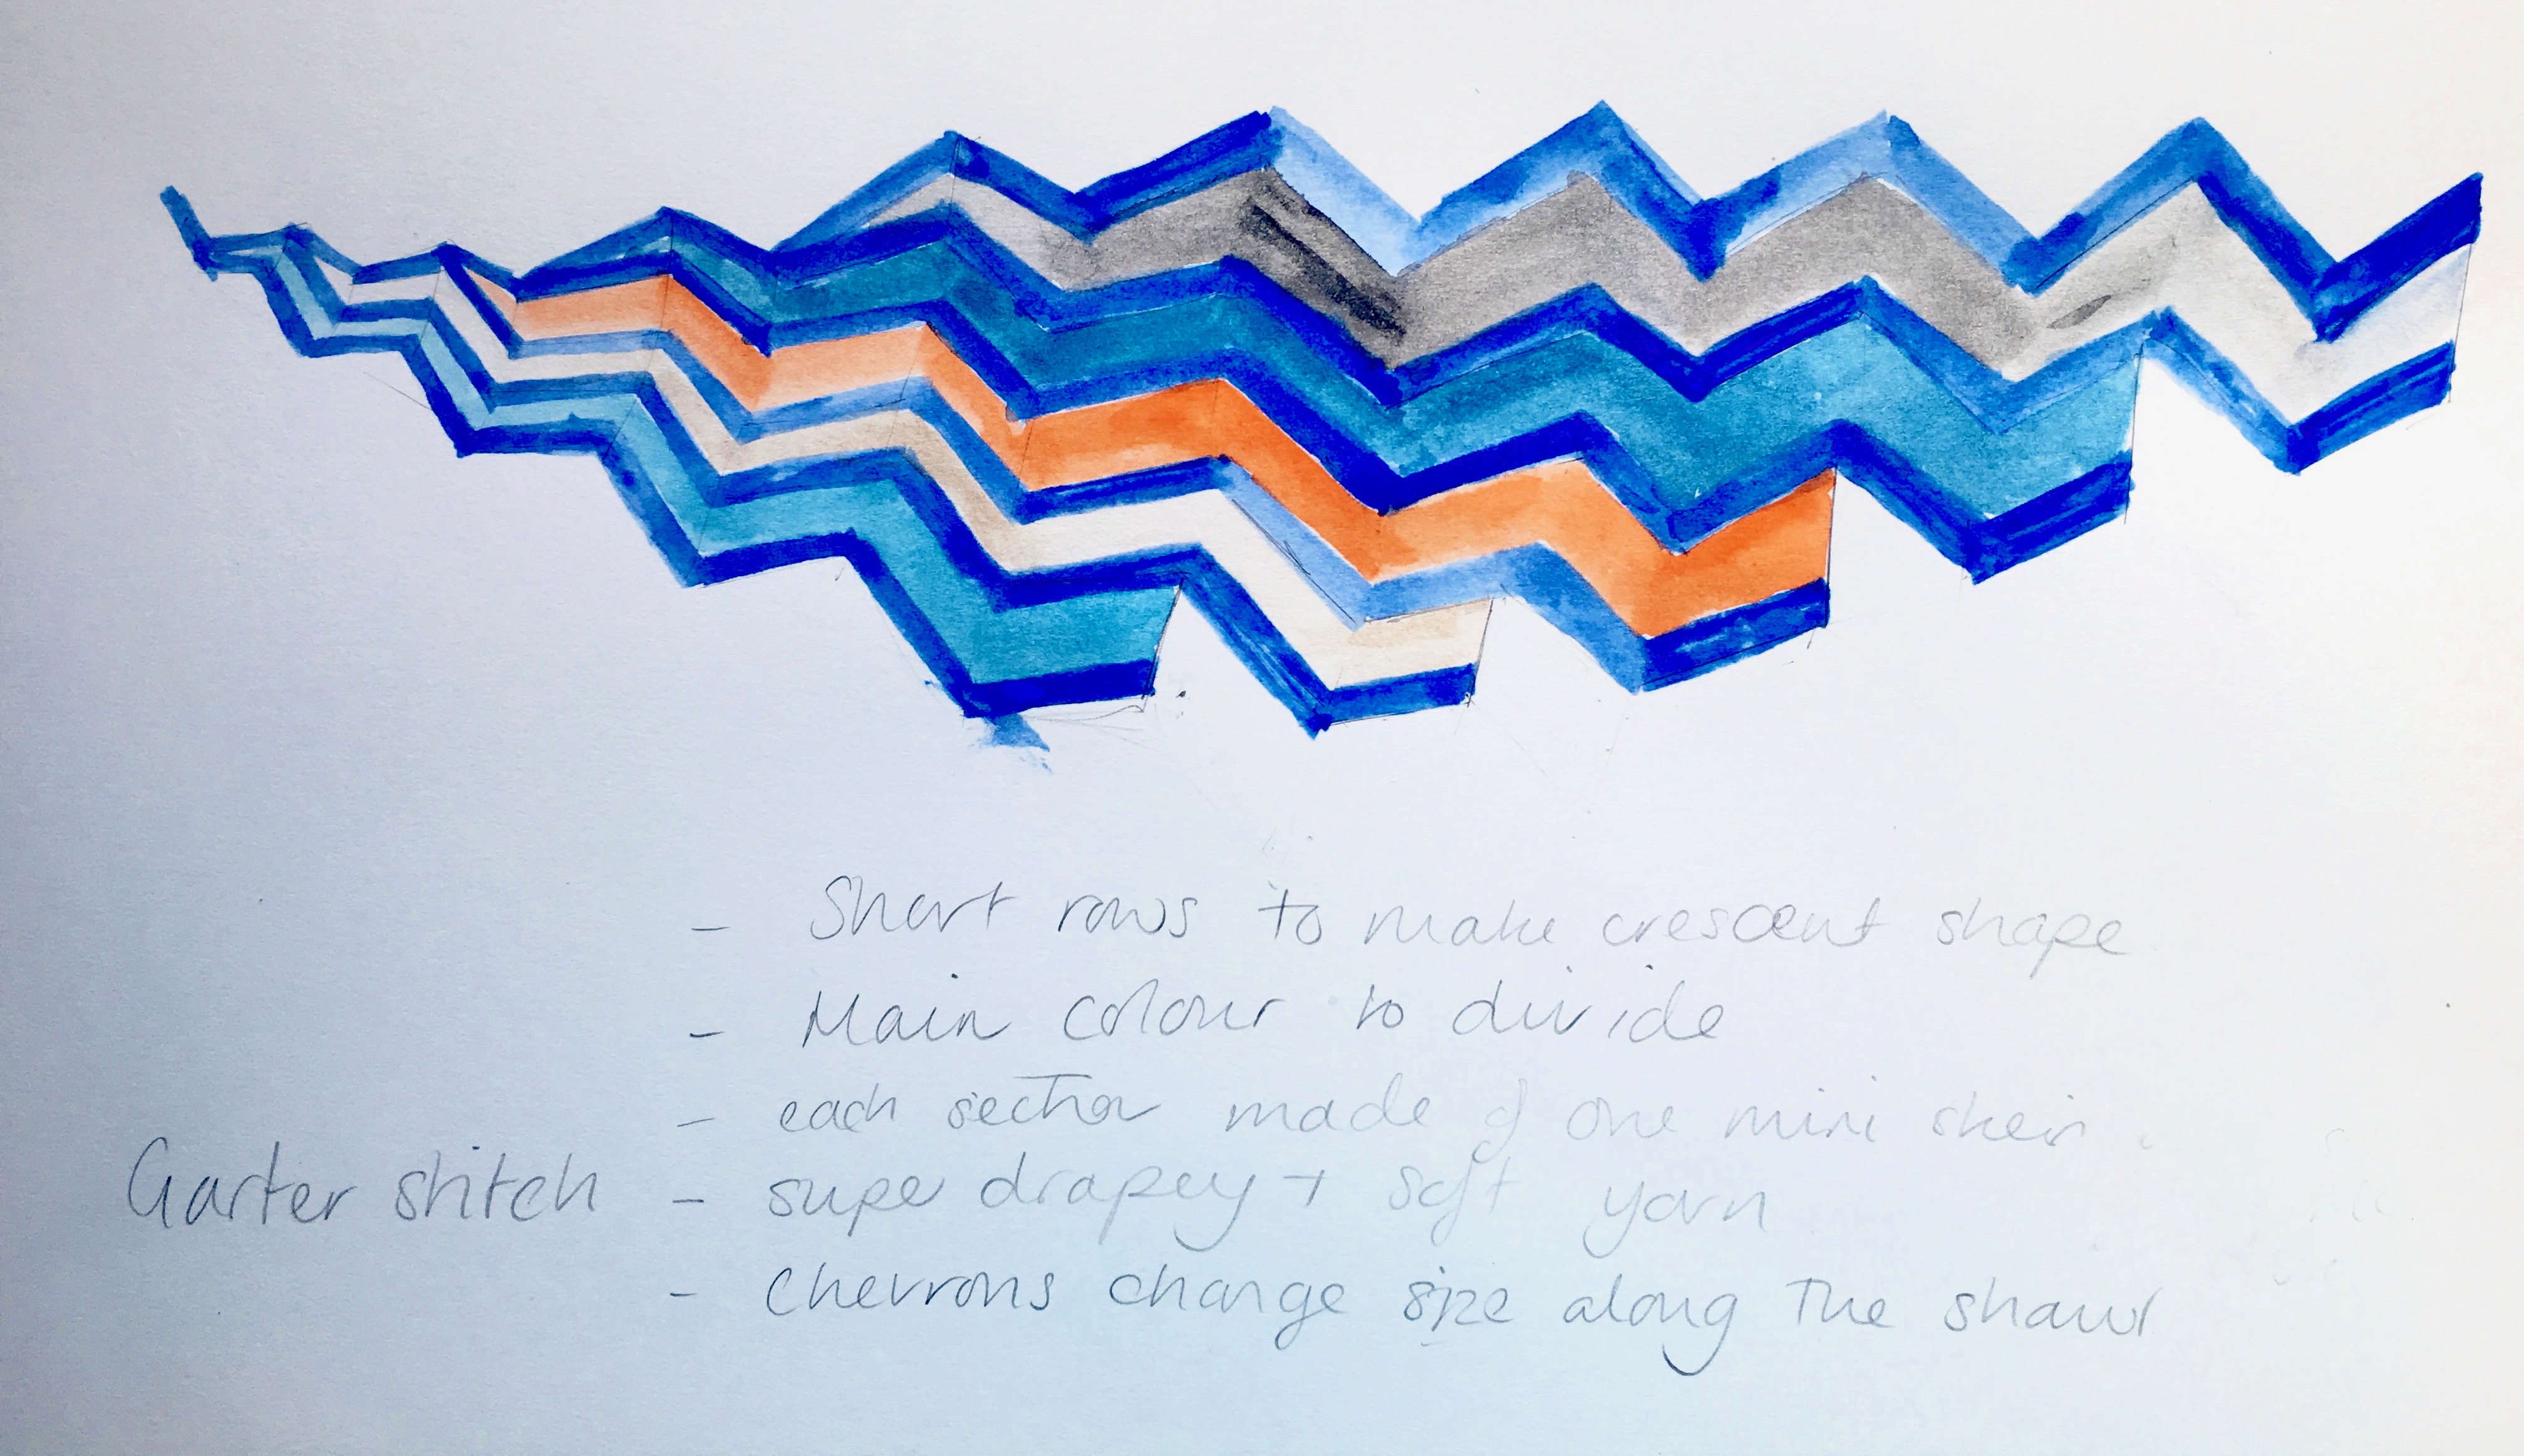 - Short rows to make crescent shape
- Main colour to divide
- each section made of one mini skein.
Garter stitch - super drapey + soft yarn
- Chevrons change size along the shawl